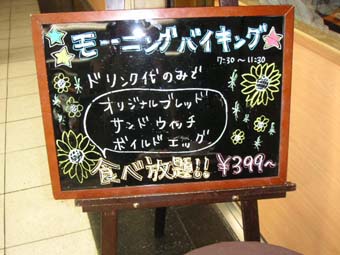 モーニングバイキング
7:30～11:30
ドリンク代のみで
オリジナルブレッド
サンドウィッチ
ボイルドエッグ
食べ放題!! ¥399～